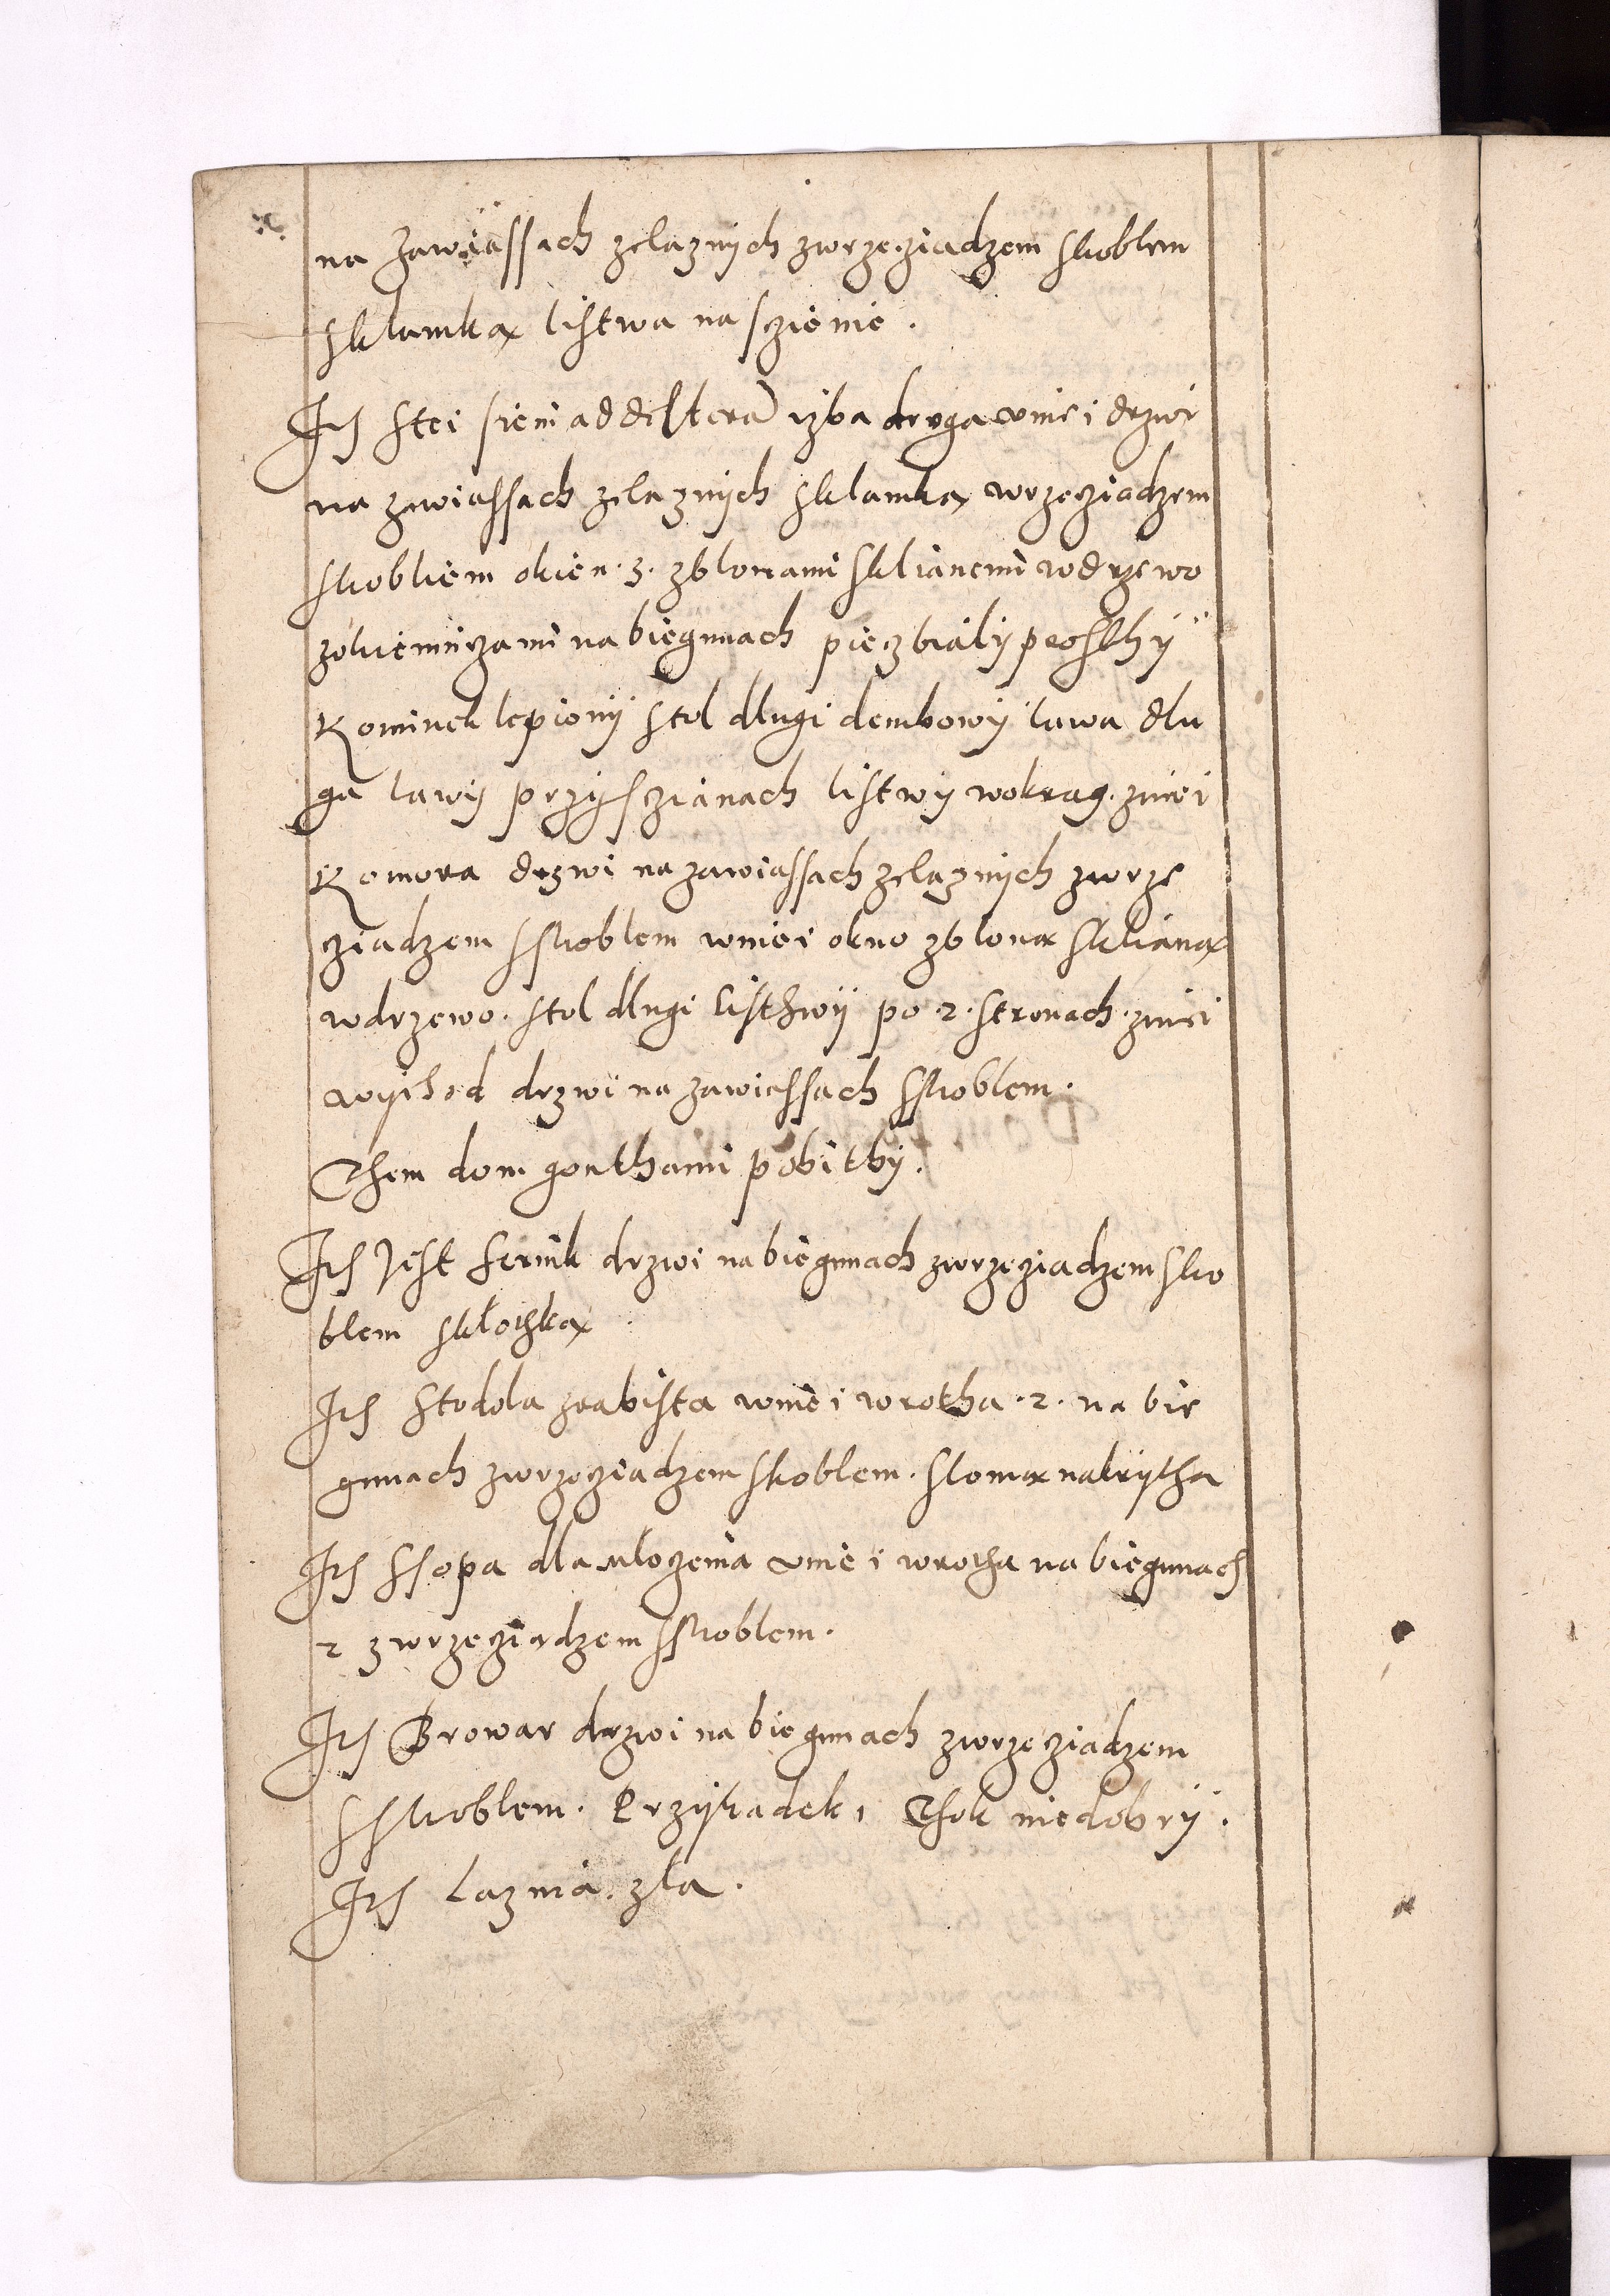 na zawiassach zelaznych zwrzecziadzem skoblem
sklamką listwa na sczienie.
Its stei sieni ad dextera izba druga wniei drzwi
na zawiassach zelaznych sklamką wrzecziadzem
skobliem okien .3. zblonami sklianemi wdrzewo
zokieniczami na biegunach piecz bialy prosthy
Kominek lepiony stol dlugi dembowy lawa dlu
ga lawy przysczianach listwy wokrag. zniei
Komora drzwi na zawiassach zelaznych zwrze
cziadzem sskoblem wniei okno zbloną sklianą
wdrzewo. stol dlugi listhwy po .2. stronach. zniei
wychod drzwi na zawiassach sskoblem.
Them dom gonthami pobithy.
Its Jest sernik drzwi na biegunach zwrzecziadzem sko
blem skłothką
Its stodola zrabista wniei wrotha .2. na bie
gunach zwrzecziadzem skoblem. slomą nakrytha
Its ssopa dla młoczenia wniei wrotha na biegunach
2 zwrzecziadzem sskoblem.
Its Browar drzwi na biegunach zwrzecziadzem
sskoblem. Przykadek 1 Thok niedobry.
Its Laznia. zła.